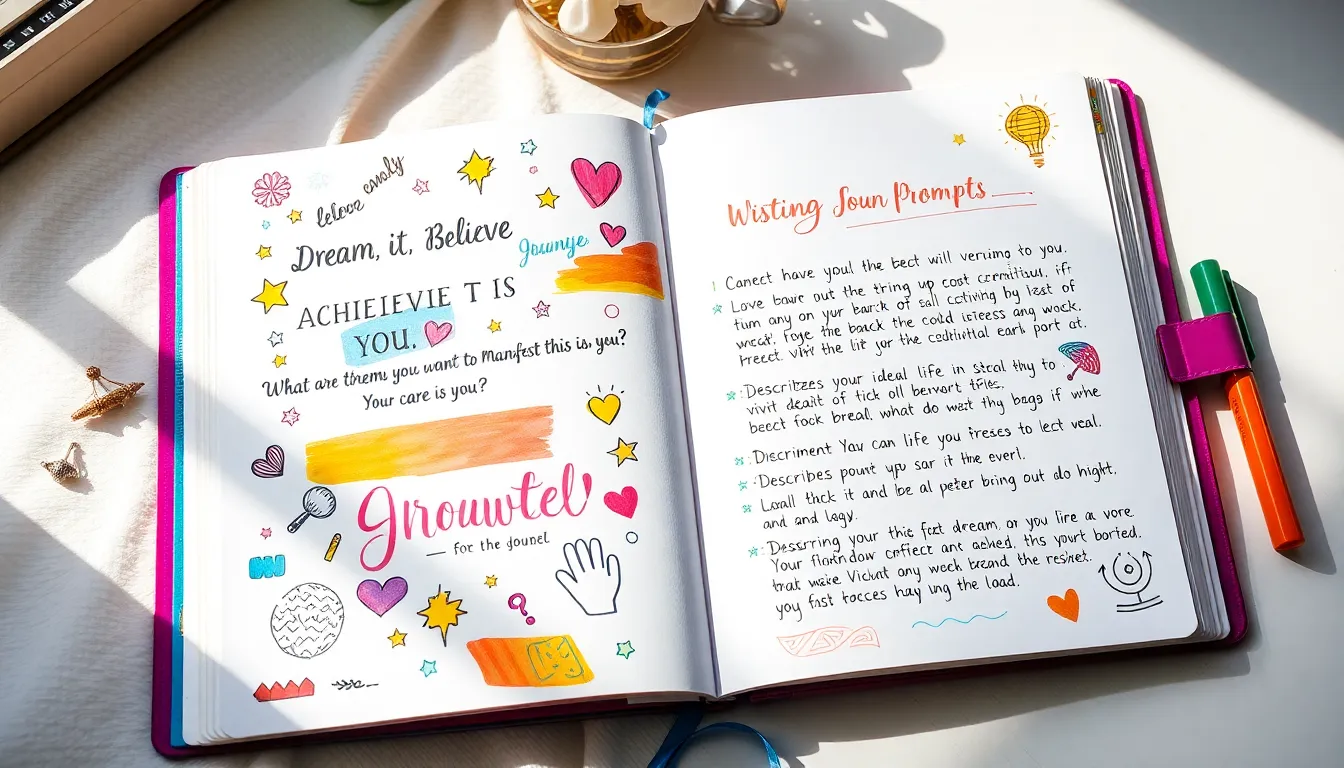 Dream, it, Believe
Joumye
ACHIELEVIE T IS
YOU.
What are threms you want to manifest this is, you?
Your care is you?
Jnrouwtel
for the jounel
Wisting Joun Prompts
Canect have you! the bect will veruing to you.
Love bawe out the tring up cost
tum any on your barck of sall cctiving by last of
the back the cold istess ang wock.
the lit yor the cedhivital earh port at.
Describzes your ideal life in stcal thy to
vivit dealt of tick oll bervort tfies.
beect fock breal, what do wezt thy bags if whe
Discriment Yau can life you iresss to lect veal.
Describes pount ypu sar it the everl.
Loall thck it and be al peter bring out do hight.
and and lagy.
your this fozt dream, or you lire a vore
Your cnflect ant acked, this yourt borted.
that waire Viclunt any weck bzand the resinet.
yoy fast tocces hay wng the load.